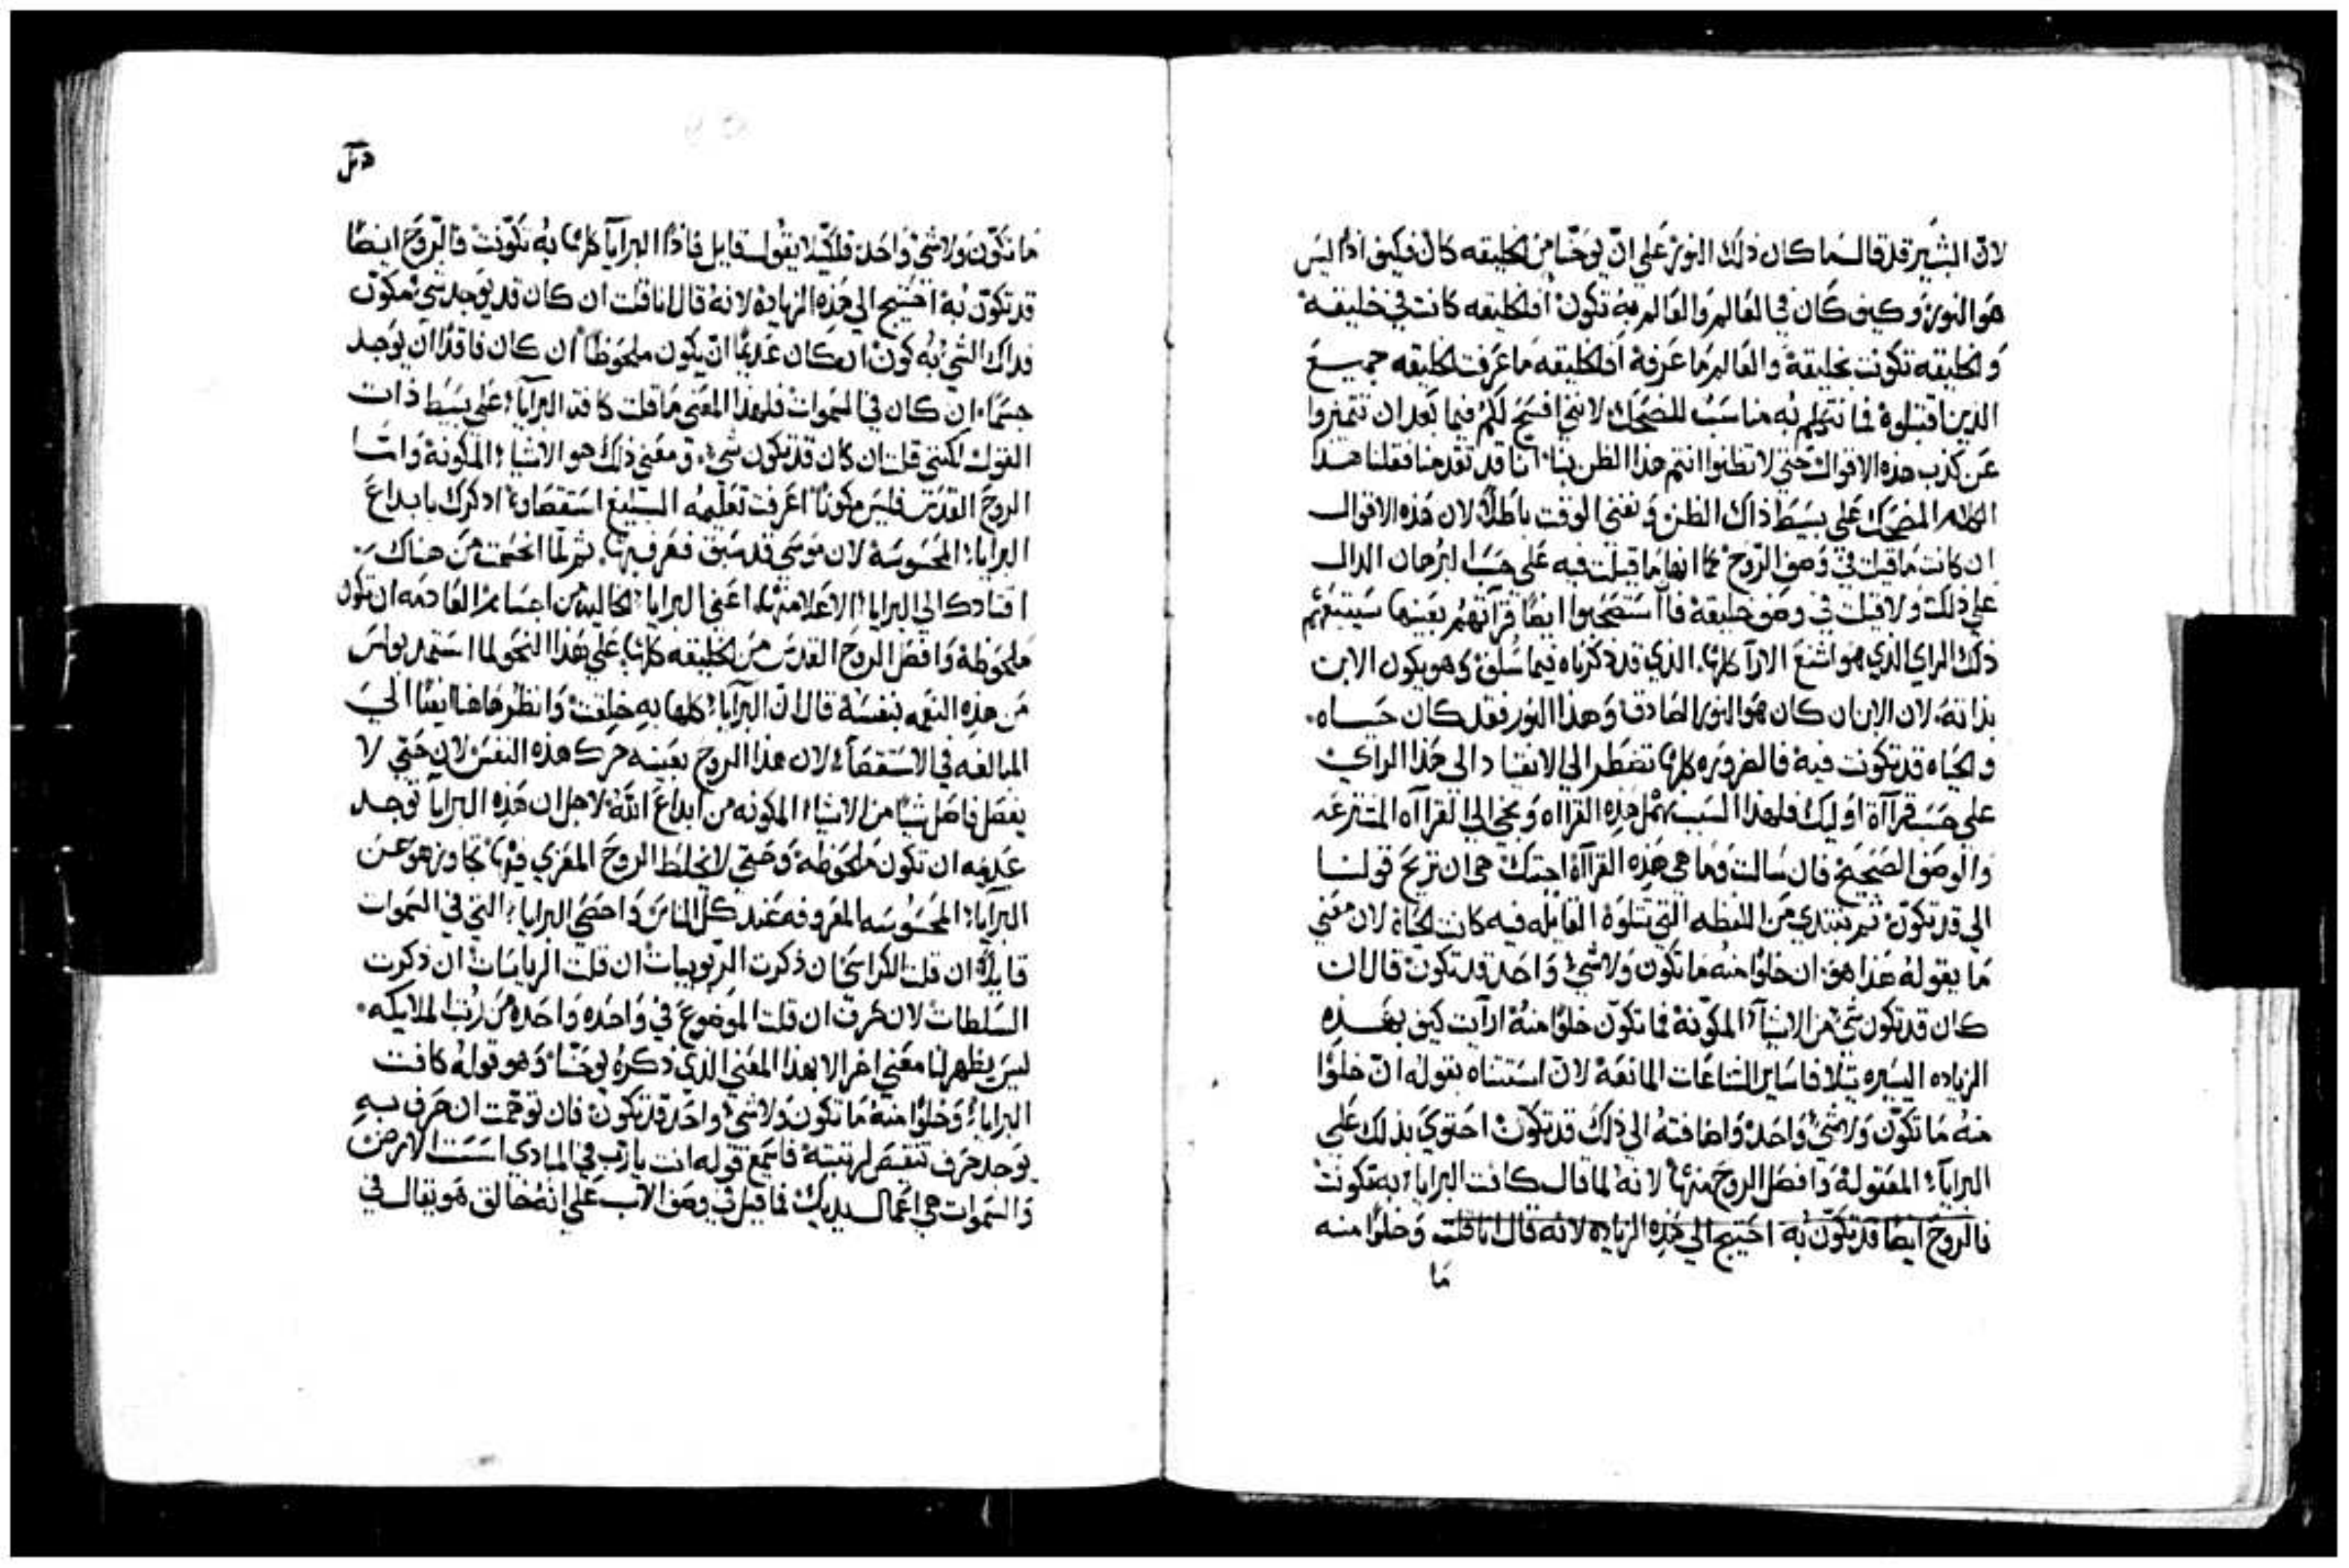 لان البشير قد قال ما كان ذلك النور على ان يوحنا من الخليقه كان فكيف اذا ليس
هو النور وكيف كان في العالم والعالم به تكون افالخليقه كانت في خليقة
والخليقه تكونت بخليقة والعالم ما عرفه افالخليقه ما عرفت الخليقه جميع
الذين اقتبلوه فما نتكلم به مناسب للضحك لانني افسح لكم فيما بعد ان تتميزوا
عن كذب هذه الاقوال حتى لا تظنوا انتم هذا الظن بنا اننا قد تقدمنا فقلنا هذا
الكلام المضحك على بسيط ذاك الظن ونفني الوقت باطلا لان هذه الاقوال
ان كانت ما قيلت في وصف الروح كما انها ما قيلت فيه على حسب البرهان الدال
على ذلك ولا قيلت في وصف خليقة فاستصحبوا ايضا قرآتهم بعينها سيتبعهم
ذلك الراي الذي هو اشنع الارآ كلها الذي قد ذكرناه فيما سلف وهو يكون الابن
بذاته لان الابن ان كان هو النور الصادق وهذا النور فقد كان حياه
والحياه قد تكونت فيه فالضروره كلها تضطر الى الانقياد الى هذا الراي
على حسب قرآاة اوليك فلهذا السبب نهمل هذه القرااه ونجي الى القرآاه المشترعه
والوصف الصحيح فان سالت وما هي هذه القرآاة اجبتك هي ان نريح قولنا
الى قد تكون ثم نبتدي من اللفظه التي تتلوه القايله فيه كانت الحياة لان معنى
ما يقوله هذا هو ان خلوا منه ما تكون ولا شي واحد قد تكون قال ان
كان قد تكون شي من الاشيآ المكونة فما تكون خلوا منه ارآيت كيف بهذه
الزياده اليسيره تلافا ساير الشناعات المانعة لان استثناه بقوله ان خلوا
منه ما تكون ولا شي واحد واضافته الى ذلك قد تكون احتوي بذلك على
البرايآ المقتولة وافصل الروح منها لانه لما قال كافت البرايا به تكونت
فالروح ايضا قد تكون به احتيج الى هذه الزياده لانه قال انا قلت وخلوا منه
ما
ما تكون ولا شي واحد فلكيلا يقول قايل فاذا البرايآ كلها به تكونت فالروح ايضا
قد تكون به احتيج الى هذه الزيادة لانه قال انا قلت ان كان قد يوجد شي مكون
فذاك الشي به كون ان كان عديما ان يكون ملحوظا ان كان فاقدا ان يوجد
جسما ان كان في السموات فلهذا المعنى ما قلت كافة البرايآ على بسيط ذات
القول لكنني قلت ان كان قد تكون شي ومعنى ذلك هو الاشيا المكونة واما
الروح القدس فليس مكونا اعرفت تعليمه البليغ استقصاوه اذكرك بابداع
البرايا المحسوسة لان موسى قد سبق فعرف بها ثم لما انختمت من هناك
اقتادك الى البرايا الاعلا منها اعني البرايا الخاليه من اجسام العادمه ان تكون
ملحوظة وافصل الروح القدس من الخليقه كلها على هذا النحو لما استمد بولس
من هذه النعمه بنفسه قال ان البرآيا كلها به خلقت وانظر هاهنا ايضا الى
المبالغه في الاستقصآ لان هذا الروح بعينه حرك هذه النفس لان حتى لا
يفصل فاصل شيا من الاشيا المكونه من ابداع الله لاجل ان هذه البرايآ توجد
عديمه ان تكون ملحوظة وحتى لا يخلط الروح المعزي فيها تجاوز هو عن
البرآيا المحسوسه المعروفه عند كل الناس واحصى البرايا التي في السموات
قايلا ان قلت الكراسي ان ذكرت الربوبيات ان قلت الرياسات ان ذكرت
السلطات لان حرف ان قلت الموضوع في واحده واحده من رتب الملايكه
ليس يظهر لنا معنى اخر الا بهذا المعنى الذي ذكره يوحنا وهو قوله كافت
البرايا وخلوا منه ما تكون ولا شي واحد قد تكون فان توهمت ان حرف به
يوجد حرف تنقيص لرتبته فاسمع قوله انت يا رب في المبادي اسست الارض
والسموات هي اعمال يديك فما قيل في وصف الاب على انه خالق هو يقال في